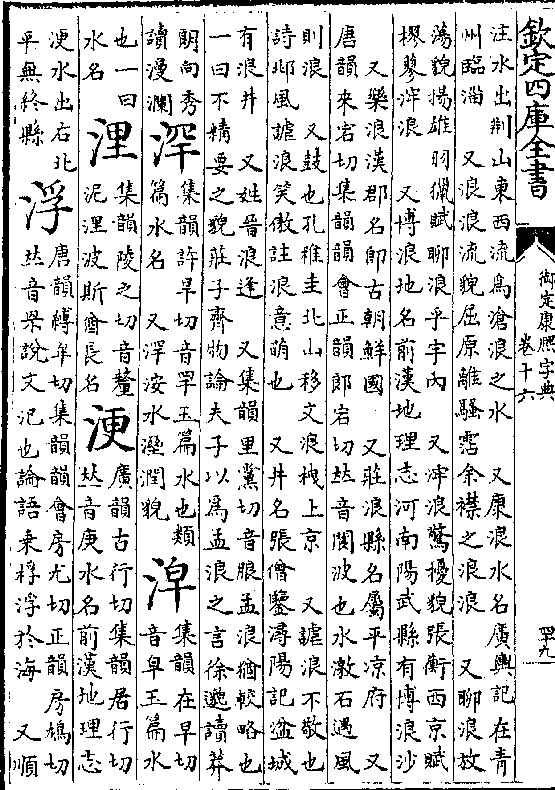 欽定四庫全書
御定康熙字典
卷十六
注水出荆山東西流為滄浪之水　又康浪水名廣輿記在青
州臨淄　又浪浪流貌屈原離騷霑余襟之浪浪　又聊浪放
蕩貌揚雄羽獵賦聊浪乎宇內　又浶浪驚擾貌張衡西京賦
摎蓼浶浪　又博浪地名前漢地理志河南陽武縣有博浪沙
又樂浪漢郡名即古朝鮮國　又莊浪縣名屬平凉府　又
唐韻來宕切集韻韻會正韻郎宕切𠀤音閬波也水激石遇風
則浪　又鼓也孔稚圭北山移文浪栧上京　又謔浪不敬也
詩邶風謔浪笑傲註浪意萌也　又井名張僧鑒潯陽記盆城
有浪井　又姓晉浪逢　又集韻里黨切音朖孟浪猶較略也
一曰不精要之貌莊子齊物論夫子以為孟浪之言徐邈讀莽
朗向秀
讀漫瀾
集韻許旱切音罕玉篇水也類
篇水名　又洝水溼潤貌
集韻在早切
音皁玉篇水
也一曰
水名
浬
集韻陵之切音釐
泥浬波斯酋長名
浭
廣韻古行切集韻居行切
𠀤音庚水名前漢地理志
浭水出右北
平無終縣
浮
唐韻縛牟切集韻韻會房尤切正韻房鳩切
𠀤音罘說文汜也論語乘桴浮於海　又順